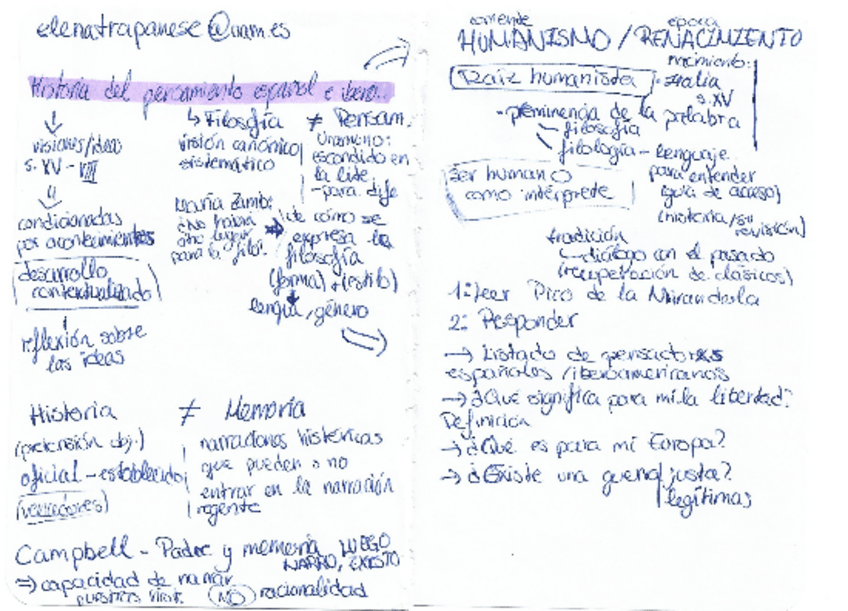 elenatrapanese@uam.es
Historia del pensamiento español e ibero...
↓
visiones/ideas
s. XV - VIII
↓
condicionadas
por acontecimientos
desarrollo
contextualizado
↓
reflexión sobre
las ideas
↳ Filosofía ≠ Pensam.
visión canónica
sistemático
Unamuno:
escondido en
la lite.
- para dife
María Zamb.
¿No habrá
otro lugar
para la filo?
de cómo se
expresa la
filosofía
(forma) + (estilo)
lengua, género
Historia ≠ Memoria
(pretensión obj.)
oficial - establecido
(vencedores)
narraciones históricas
que pueden o no
entrar en la narración
regente
Campbell - Padre y memoria LUEGO
NARRO, EXISTO
⇒ capacidad de narrar
nuestras vidas. (NO) racionalidad
corriente época
HUMANISMO / RENACIMIENTO
Raíz humanista nacimiento:
Italia
s. XV
- preminencia de la palabra
filosofía
filología - lenguaje
para entender
(guía de acceso)
(historia/su
revisión)
ser humano
como intérprete
tradición
↳ diálogo con el pasado
(recuperación de clásicos)
1: Leer Pico de la Mirandola
2: Responder
→ Listado de pensadores
españoles/iberoamericanos
→ ¿Qué significa para mi la libertad?
Definición
→ ¿Qué es para mi Europa?
→ ¿Existe una guerra justa?
legítimas